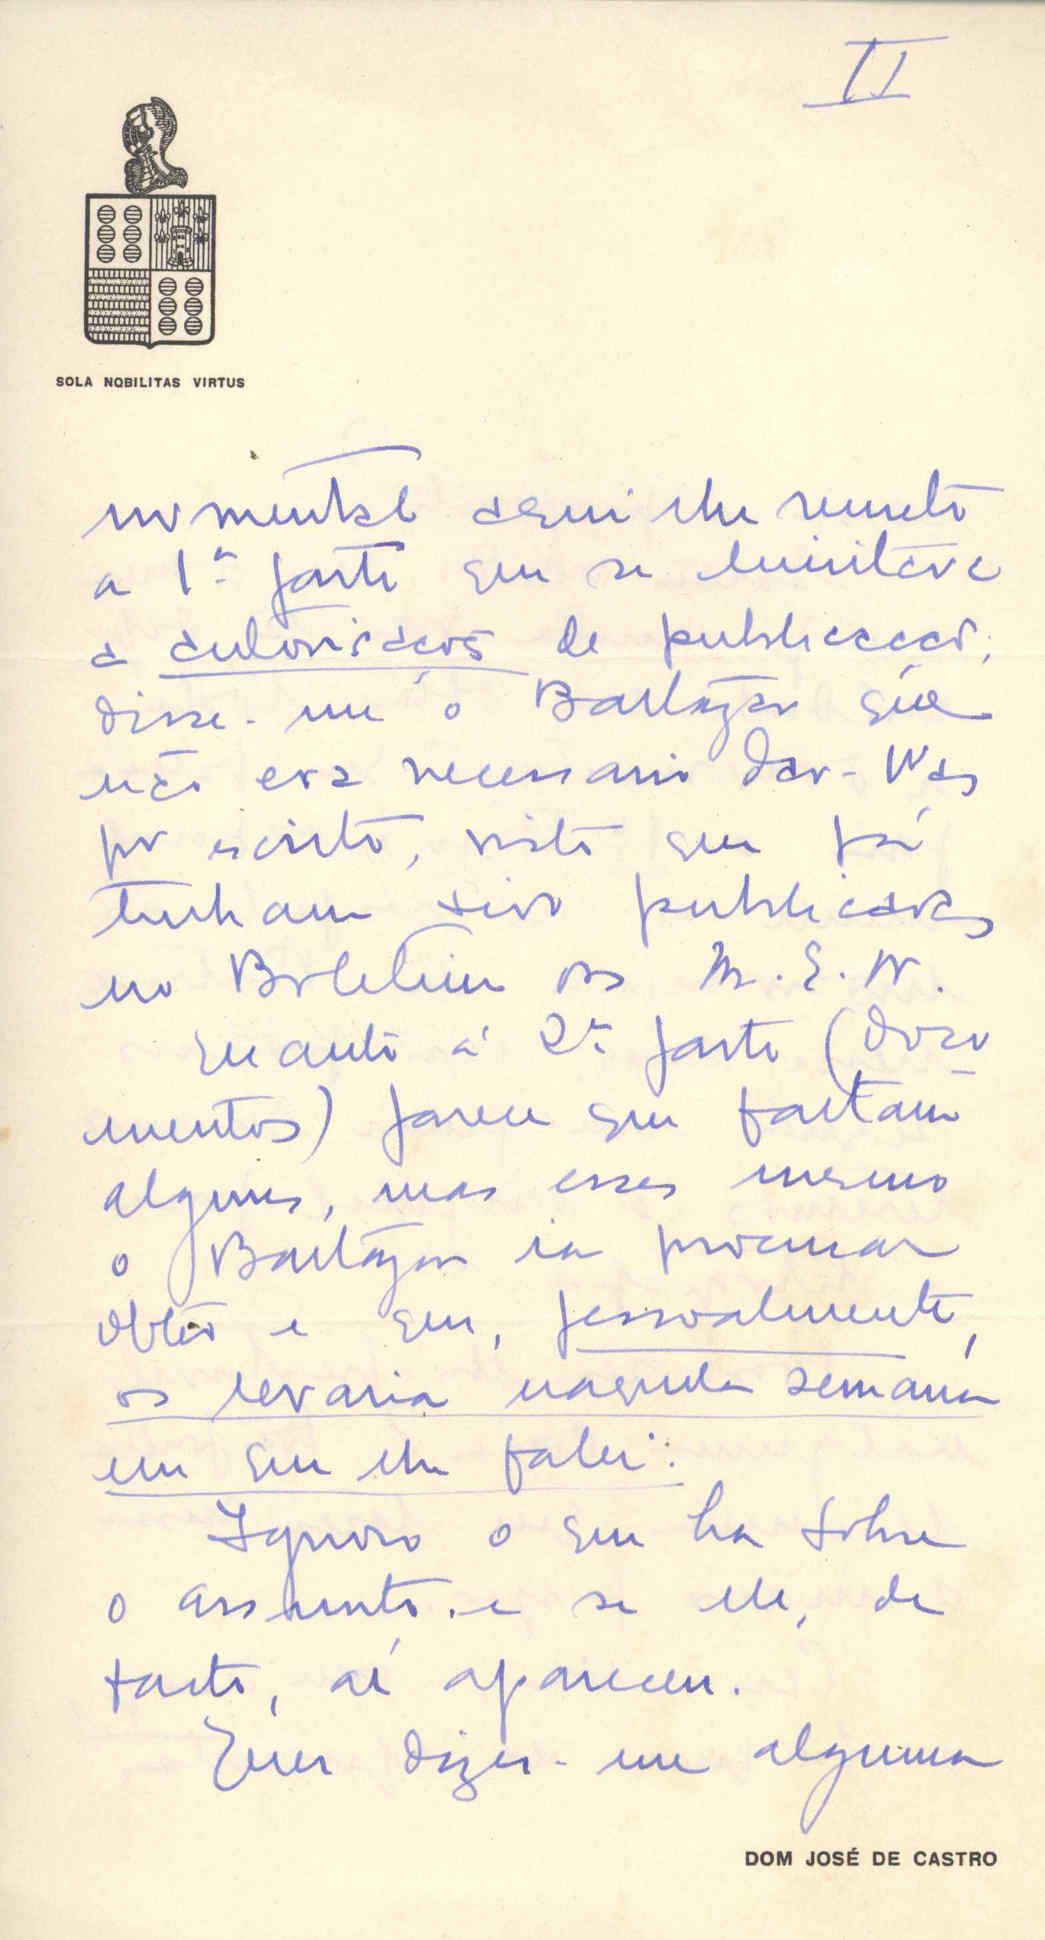 II
SOLA NOBILITAS VIRTUS
numental aqui lhe remeto
a 1ª parte que se limitava
a autorisação de publicação;
disse-me o Baltazar que
não era necessario dar-lh'as
por escrito, visto que já
tinham sido publicadas
no Boletim os M. E. N.
Quanto á 2ª parte (docu
mentos) parece que faltam
alguns, mas esses mesmo
o Baltazar ia procurar
obter e que, pessoalmente,
os levaria naquela semana
em que lhe falei.
Ignoro o que ha sobre
o assunto e se ele, de
facto, aí apareceu.
Quer dizer-me alguma
DOM JOSÉ DE CASTRO